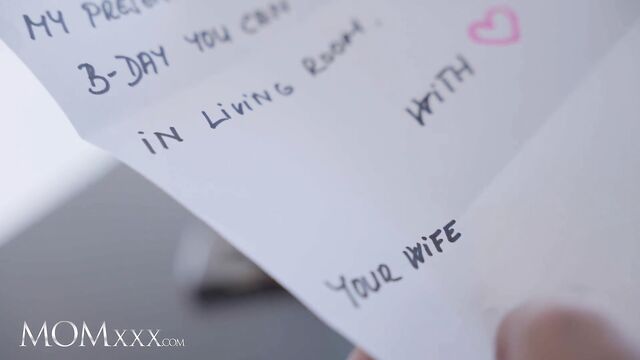 MY
B-DAY YOU CAN
IN LIVING ROOM.
WITH
YOUR WIFE
MOMXXX.COM